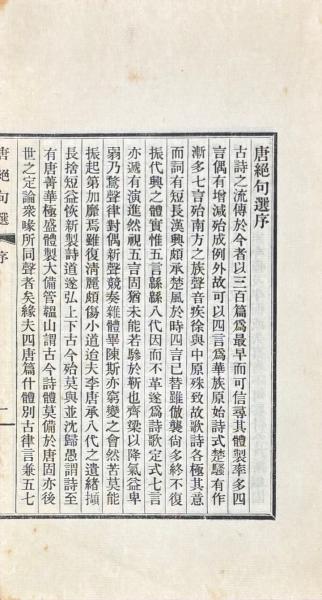 唐絕句選序
古詩之流傳於今者以三百篇爲最早而可信尋其體製率多四
言偶有增減殆成例外故可以四言爲華族原始詩式楚騷有作
漸多七言殆南方之族聲音疾徐與中原殊致故歌詩各極其意
而詞有短長漢興頗承楚風於時四言已替雖倣襲尙多終不復
振代興之體實惟五言緜緜八代因而不革遂爲詩歌定式七言
亦遞有演進然視五言固猶未能若驂於靳也齊梁以降氣益卑
弱乃騖聲律對偶新聲競奏雜體畢陳斯亦窮變之會然苦莫能
振起第加靡焉雖復淸麗頗傷小道迨夫李唐承八代之遺緒擷
長捨短益恢新製詩道遂弘上下古今殆莫與並沈歸愚謂詩至
有唐菁華極盛體製大備管韞山謂古今詩體莫備於唐固亦後
世之定論衆喙所同聲者矣緣夫四唐篇什體別古律言兼五七
唐絕句選 序
一